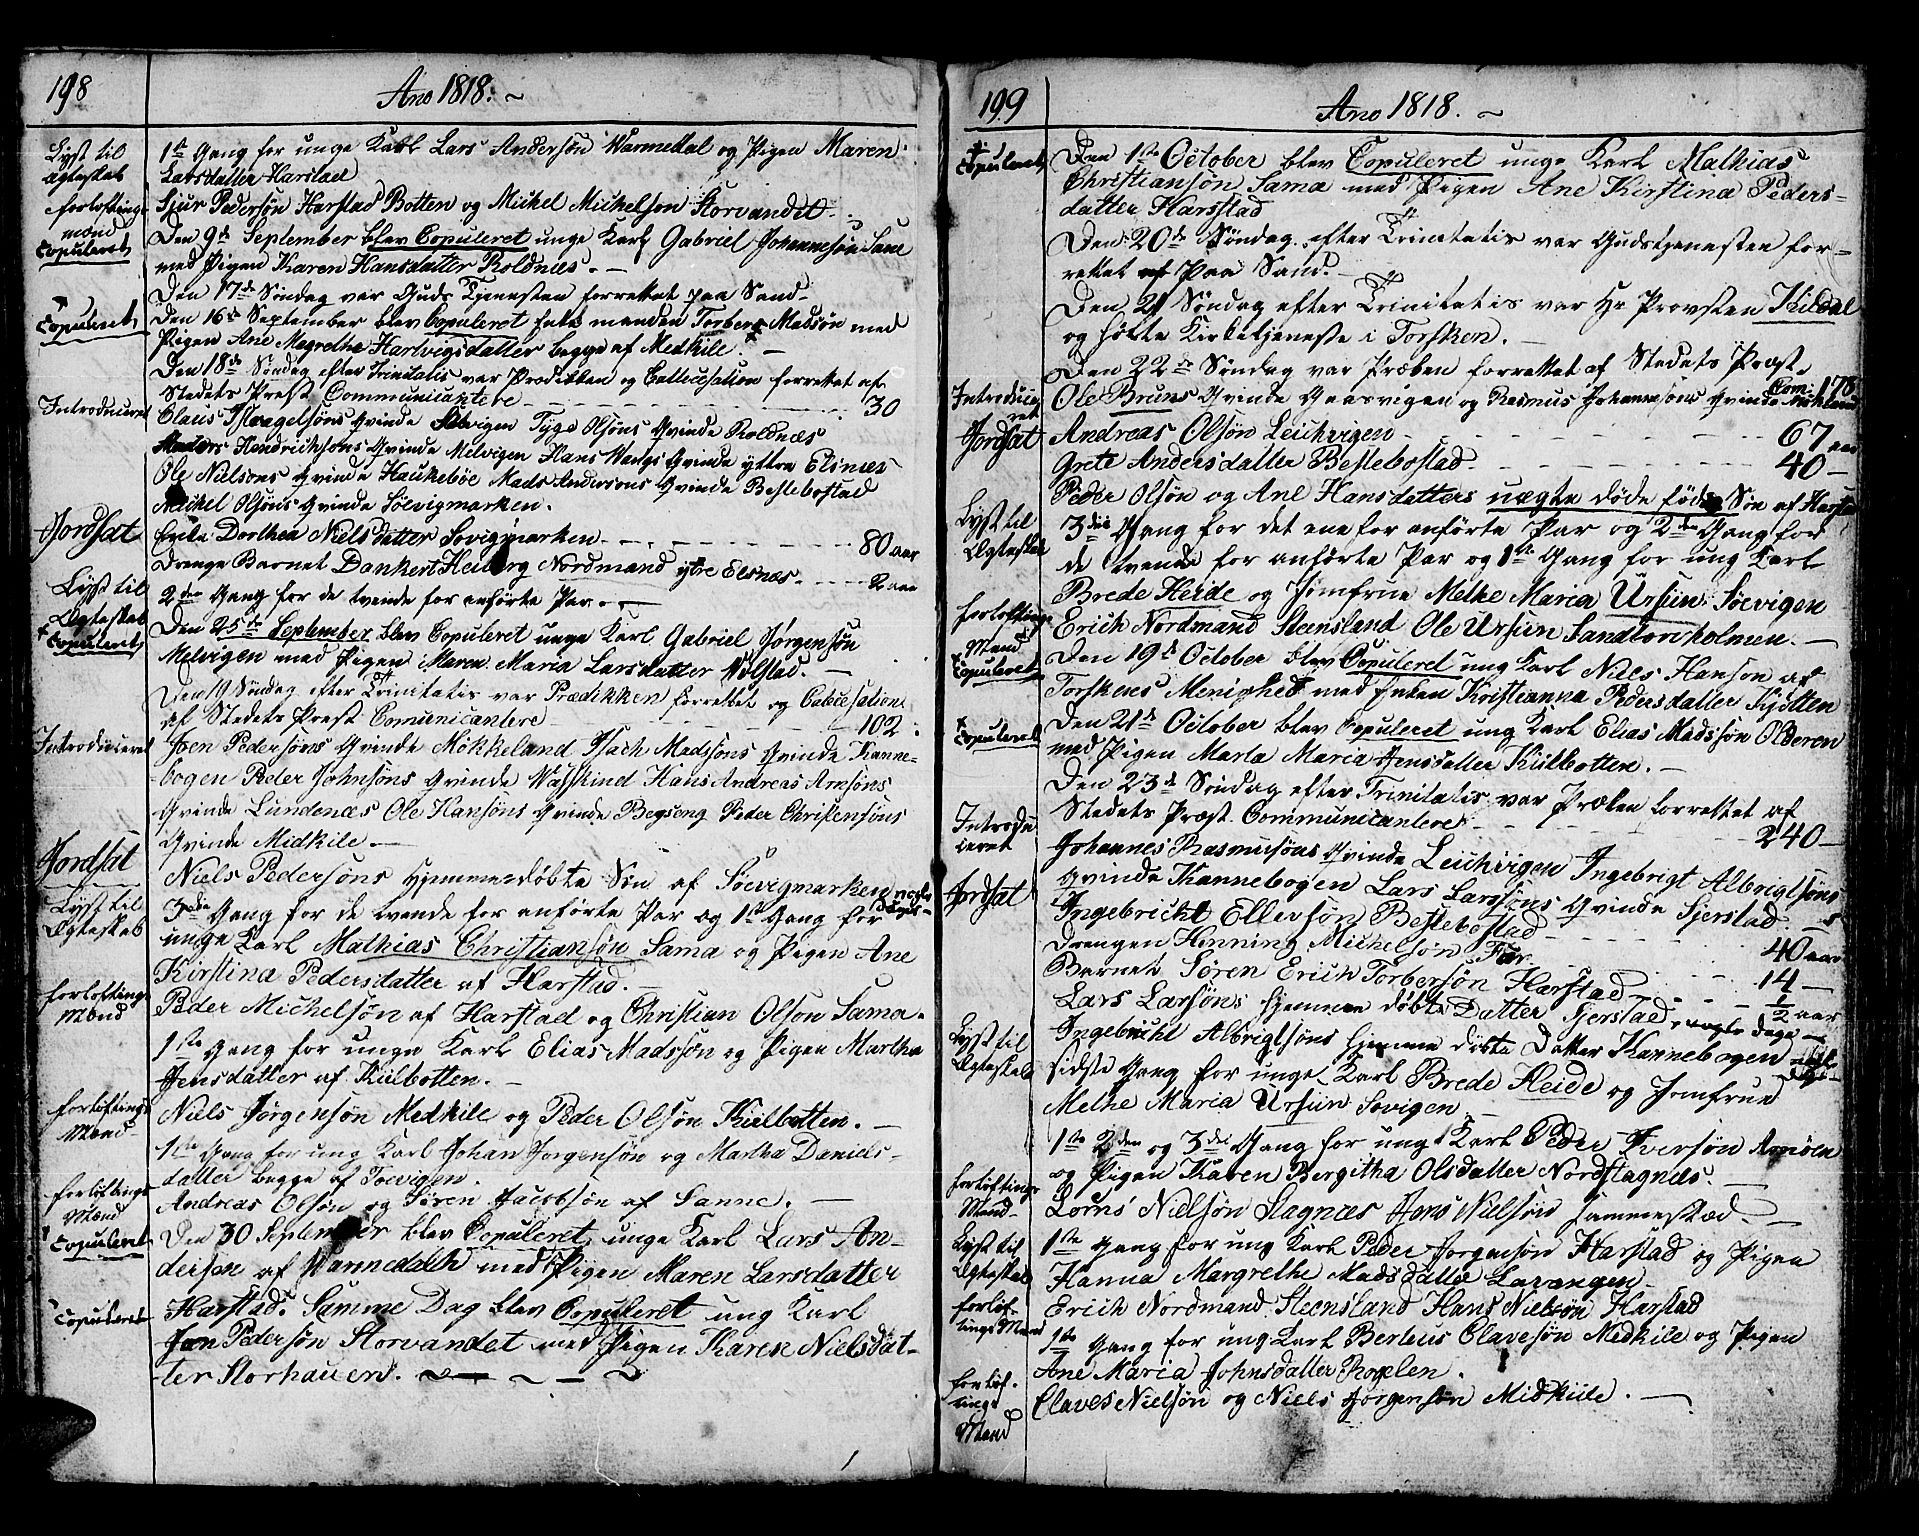 198
Ano 1818. ~
Lyst til
Ægteskab
1ste Gang for unge Karl Lars Andersøn Warmedal og Pigen Maren
Larsdatter Harstad
forloftings
mænd
Sjur Pedersøn Harstad Botten og Michel Michelsøn Storvandet
Copuleret
Den 9de September blev Copuleret unge Karl Gabriel Johannesøn Sane
med Pigen Karen Hansdatter Roldnæs. —
Den 17de Søndag var Guds Tjenesten forrettet paa Sand.
Copuleret
Den 16de September blev Copuleret Enke manden Torber Madsøn med
Pigen Ane Magrethe Hartvigsdatter begge af Medkile. —
Den 18de Søndag efter Trinitatis var Prædikken og Catticesation forrettet af
Stedets Prest Communicantere 30
Introduceret
Claus Hvagelsøns Qvinde Selvigen Tyge Olsøns Qvinde Roldnæs
Anders Hendrichsøns Qvinde Melvigen Hans Wangs Qvinde yttre Elsnæs
Ole Nielsøns Qvinde Haukebøe Mads Andersøns Qvinde Beslebostad
Michel Olsøns Qvinde Søevigmarken.
Jordsat
Enke Dorthea Nielsdatter Sovigmarken 80 aar
Drenge Barnet Dankert Heiberg Nordmand ytre Elsnæs 2 aar
Lyst til
Ægteskab
2den Gang for de tvende for anførte Par. —
Copuleret
Den 25de September blev Copuleret unge Karl Gabriel Jørgensøn
Melvigen med Pigen Maren Maria Larsdatter Wølstad. —
Den 19 Søndag efter Trinitatis var Prædikken forrettet og Catecesation
af Stedets Prest Comunicantere 102
Introduceret
Joen Pedersøns Qvinde Mökkeland Isach Madsøns Qvinde Kanne-
bogen Peder Johnsøns Qvinde Waskind Hans Andreas Arnsøns
Qvinde Lundenæs Ole Hansøns Qvinde Bergseng Peder Christensøns
Qvinde Midkile —
Jordsat
Niels Pedersøns Hjemmedøbte Søn af Søevigmarken nogle Dage
Lyst til
Ægteskab
3die Gang for de tvende for anførte Par og 1ste Gang for
unge Karl Mathias Christiansøn Sama og Pigen Ane
Kirstina Pedersdatter af Harstad. —
forloftings
Mænd
Peder Michelsøn af Harstad og Christian Olsøn Sama.
1ste Gang for unge Karl Elias Madssøn og Pigen Martha
Jensdatter af Kulbotten. —
forloftings
Mænd
Niels Jørgensøn Medkile og Peder Olsøn Kulbotten. —
1ste Gang for ung Karl Johan Jorgensøn og Martha Daniels-
datter begge af Toevigen.
forloftings
Mænd
Andreas Olsøn og Søren Jacobsøn af Sanne. —
Copuleret
Den 30 September blev Copuleret unge Karl Lars An-
dersøn af Wannedahl med Pigen Maren Larsdatter
Copuleret
Harstad. Samme Dag blev Copuleret ung Karl
Jon Pedersøn Storvandet med Pigen Karen Nielsdat-
ter Storhauen. ~
199
Ano 1818. ~
Copuleret
Den 1ste October blev Copuleret unge Karl Mathias
Christiansøn Sama med Pigen Ane Kirstina Peders-
datter Harsstad
Den 20de Søndag efter Trinitatis var Gudstjenesten for-
rettet af Paa Sand. —
Den 21 Søndag efter Trinitatis var Hr Provsten Kildal
og holte Kirketjeneste i Torsken. —
Den 22de Søndag var Præken forrettet af Stedets Præst.
Com: 178
Introduce
ret
Ole Bruns Qvinde Gaasvigen og Rasmus Johannesøns Qvinde Mökland
Jordsat
Andreas Olsøn Leichvigen 67 aar
Grete Andersdatter Beslebostad 40 —
Peder Olsøn og Ane Hansdatters uægte døde føde Søn af Harstad
Lyst til
Ægteskab
3die Gang for det ene for anførte Par og 2den Gang for
de tvende for anførte Par og 1ste Gang for ung Karl
Brede Heide og Jomfrue Melke Maria Ursiin Søevigen
forloftings
Mænd
Erich Nordmand Steensland Ole Ursiin Sandtorvholmen. —
Copuleret
Den 19de October blev Copuleret ung Karl Niels Hansøn af
Torskens Menighed med Enken Kristianna Pedersdatter Kjøtten
Copuleret
Den 21de October blev Copuleret ung Karl Elias Madssøn Olderen
med Pigen Marta Maria Jensdatter Kulbotten. —
Den 23de Søndag efter Trinitatis var Præken forrettet af
Stedets Præst. Communicantere 240
Introdu
ceret
Johannes Rasmusøns Qvinde Leichvigen Ingebrigt Albrigtsøns
Qvinde Kannebogen Lars Larssøns Qvinde Sjerstad.
Jordsat
Ingebricht Ellevsøn Beslebostad 40 aar
Drengen Henning Michelsøn Før 14 —
Barnet Søren Erich Torbersøn Harstad 1/2 aar
Lars Larsøns hjemme døbte Datter Sjerstad nogle dage —
Ingebricht Albrigtsøns hjemme døbte Datter Kannebogen
Lyst til
Ægteskab
sidste Gang for unge Karl Brede Heide og Jomfrue
Melke Maria Ursiin Sovigen —
1ste 2den og 3die Gang for ung Karl Peder Iversøn Arnøen
og Pigen Karen Bergitha Olsdatter Nordstagnes. —
forloftings
Mænd
Lorns Nielsøn Stagnæs Jens Nielsøn sammestæd. —
Lyst til
Ægteskab
1ste Gang for ung Karl Peder Jorgensøn Harstad og Pigen
Hanna Margrethe Madsdatter Lavangen
forlof-
tings Mænd
Erich Nordmand Steensland Hans Nielsøn Harstad
1ste Gang for ung Karl Berteus Clavesøn Medkile og Pigen
Ane Maria Johnsdatter Rogelen.
forlof-
tings
Mænd
Claves Nielsøn og Niels Jørgensøn Midkiile. —